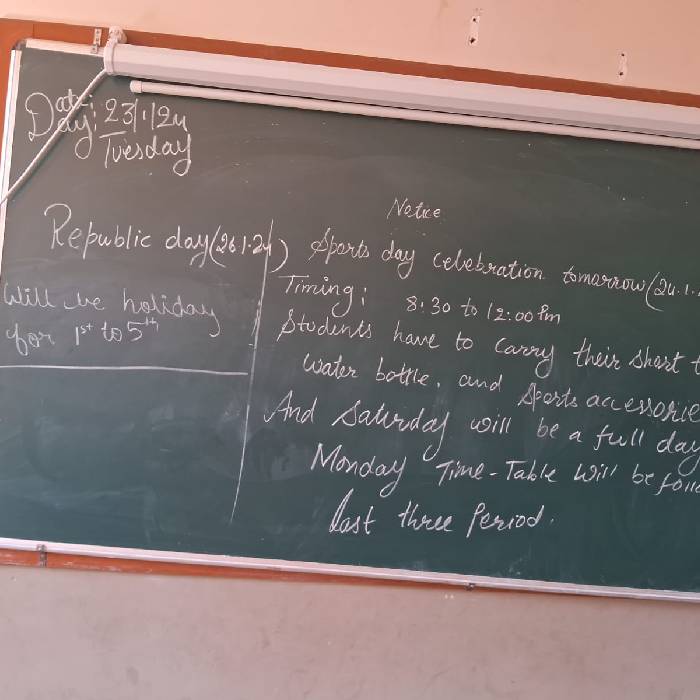 Date: 23/1/24
Day: Tuesday
Republic day (26.1.24)
Will be holiday
for 1st to 5th
Notice
Sports day celebration tomorrow (24.1.
Timing: 8:30 to 12:00 Pm
Students have to carry their short
water bottle, and Sports accessorie
And Saturday will be a full day
Monday Time-Table will be follo
last three Period.